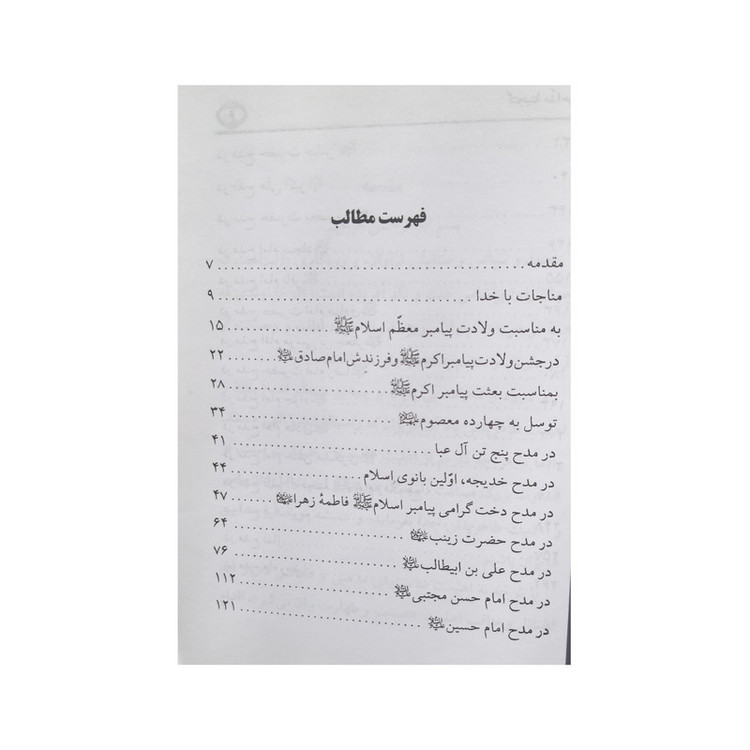 فهرست مطالب
مقدمه ........................................ ۷
مناجات با خدا ................................ ۹
به مناسبت ولادت پیامبر معظّم اسلام ﷺ .............. ۱۵
در جشن ولادت پیامبر اکرم ﷺ و فرزندش امام صادق ........ ۲۲
بمناسبت بعثت پیامبر اکرم ﷺ .................. ۲۸
توسل به چهارده معصوم .................... ۳۴
در مدح پنج تن آل عبا ........................ ۴۱
در مدح خدیجه، اوّلین بانوی اسلام ................ ۴۴
در مدح دخت گرامی پیامبر اسلام ﷺ فاطمهٔ زهرا ........ ۴۷
در مدح حضرت زینب ...................... ۶۴
در مدح علی بن ابیطالب .................... ۷۶
در مدح امام حسن مجتبی .................... ۱۱۲
در مدح امام حسین ...................... ۱۲۱